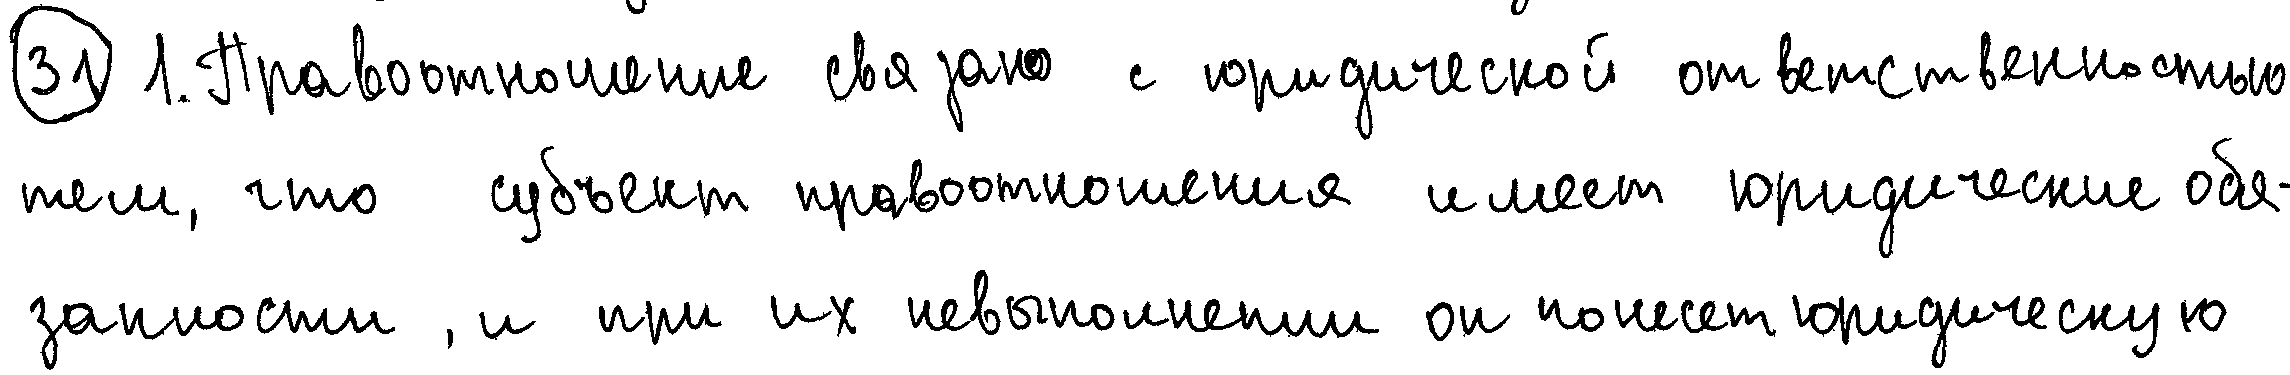 31 1. Правоотношение связано с юридической ответственностью
тем, что субъект правоотношения имеет юридические обя-
занности, и при их невыполнении он понесет юридическую